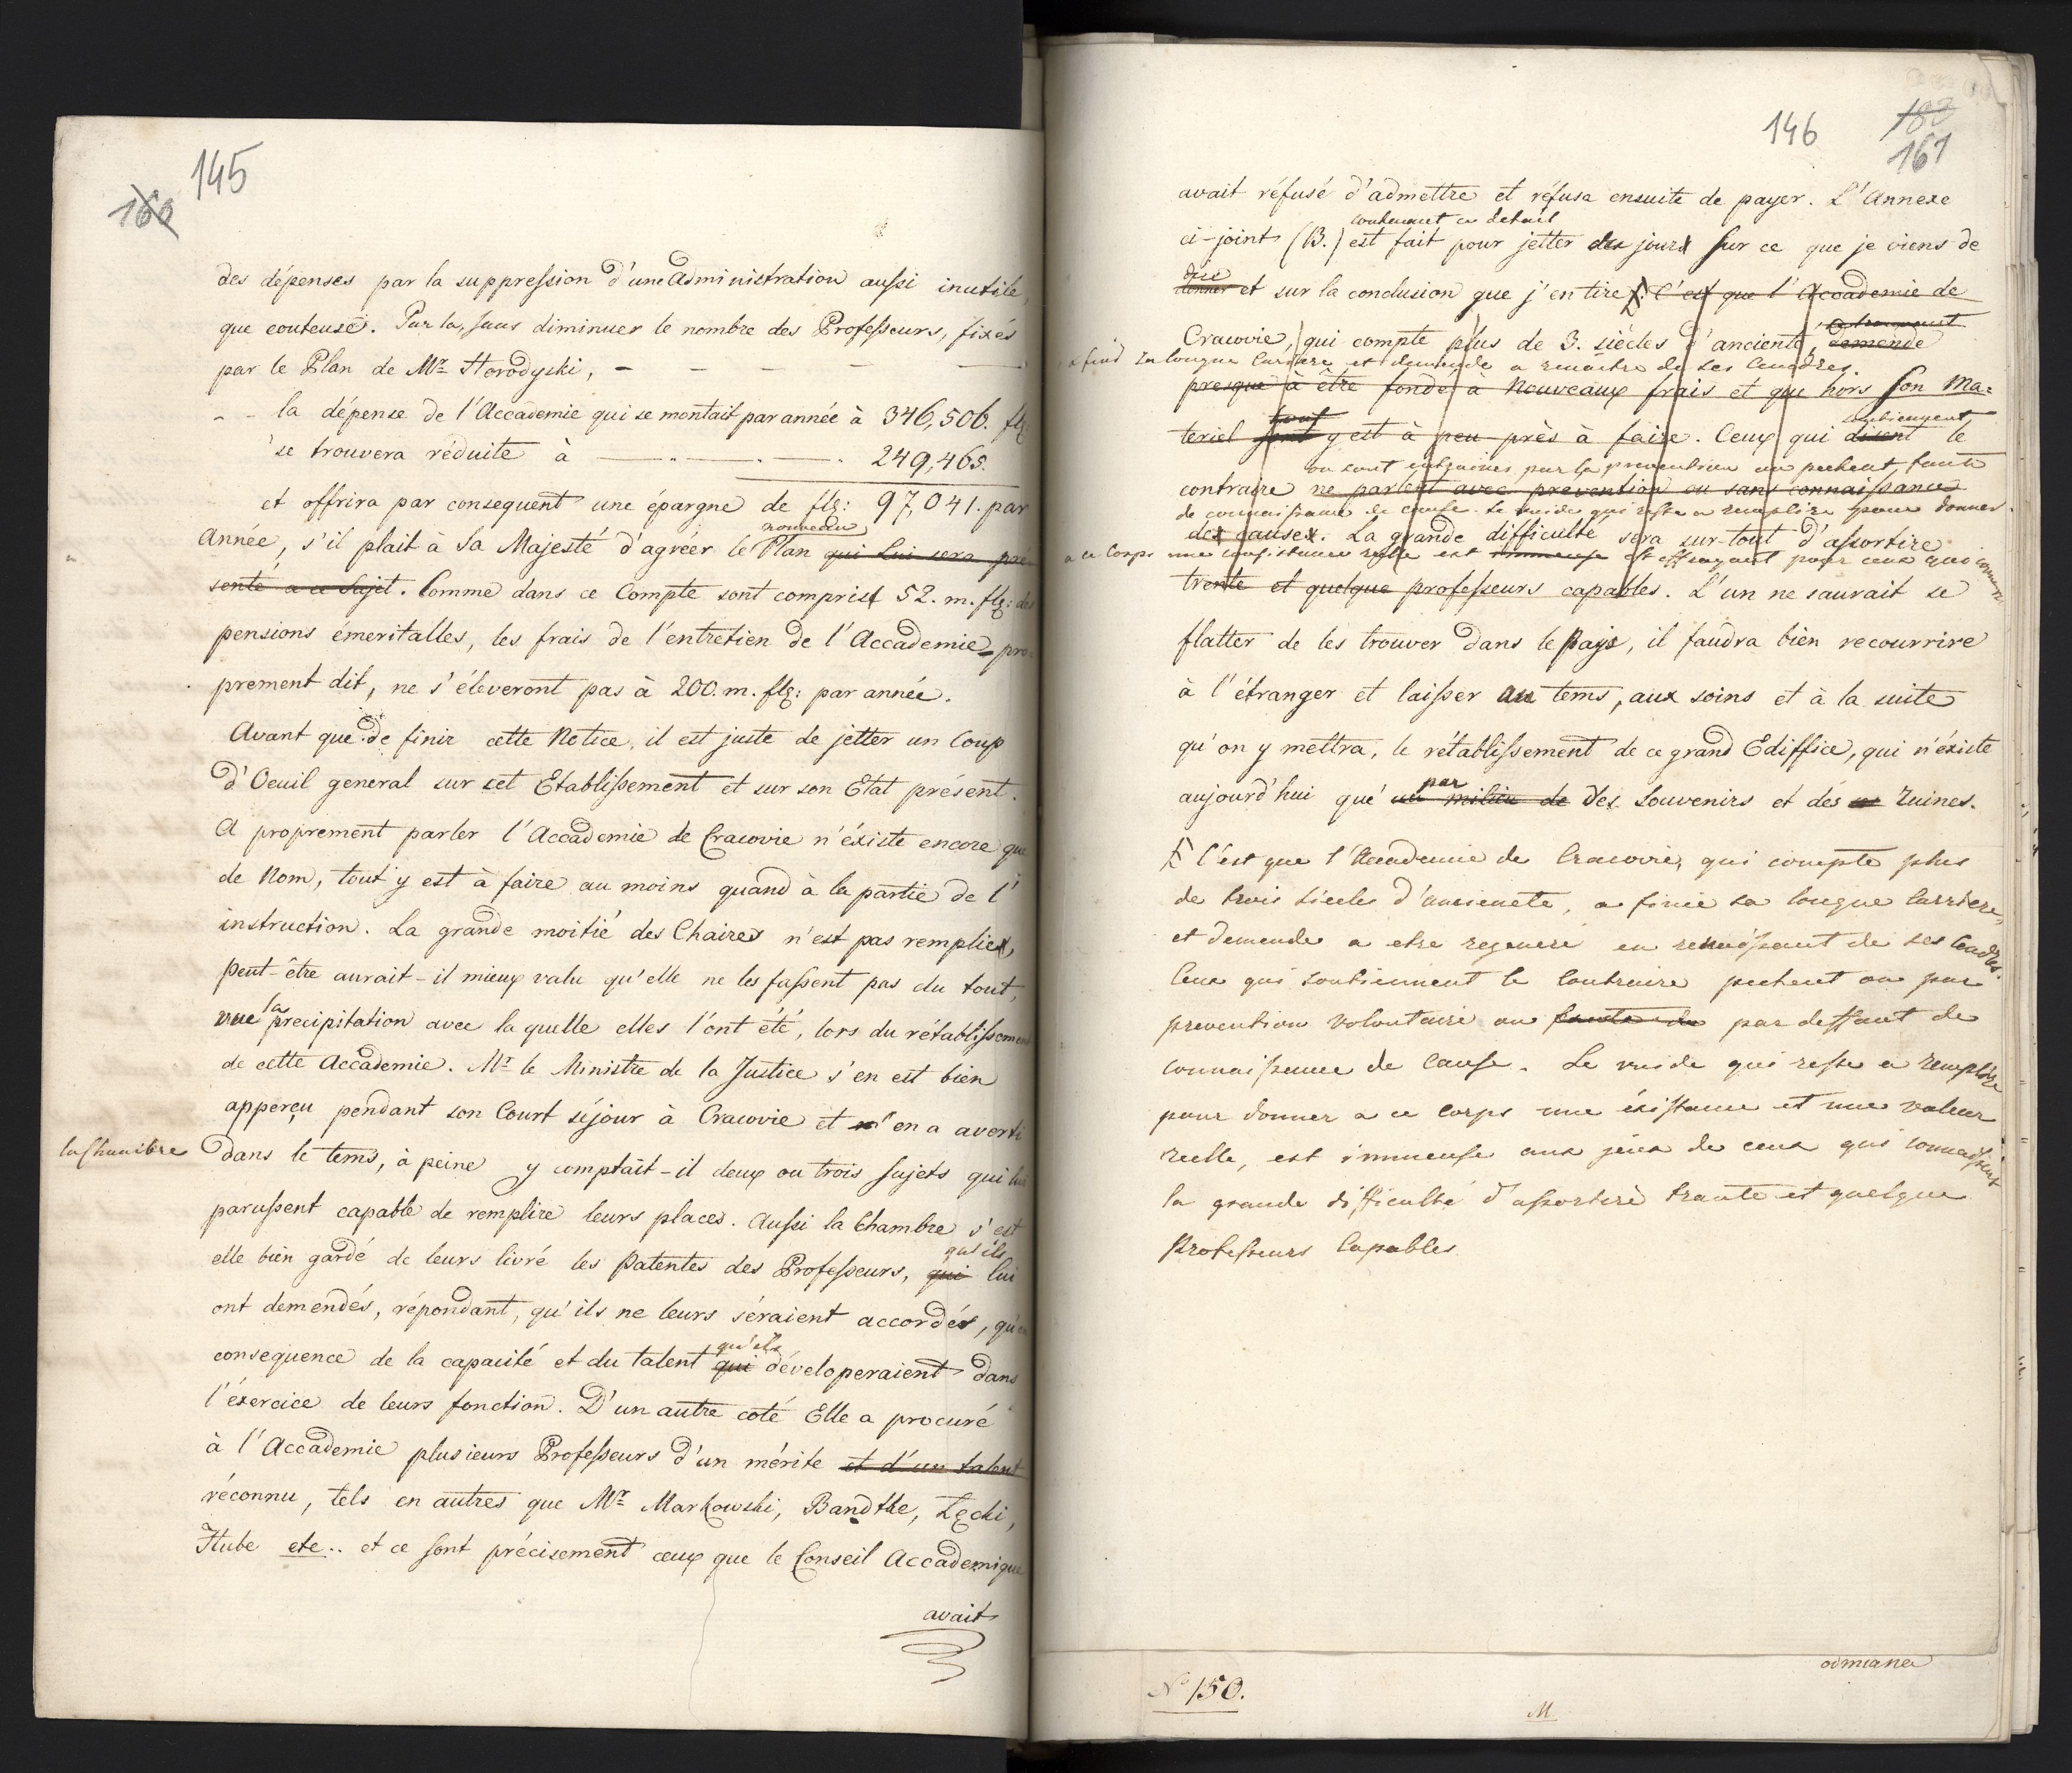 145
160
des dépenses par la suppression d'une administration aussi inutile,
que couteuse. Par la, sans diminuer le nombre des Professeurs, fixés
par le Plan de Mr. Horodyski, — — — — —
- - la dépense de l'Accademie qui se montait par année à 346,506. flg.
se trouvera réduite à — " — " — . 249,465.
et offrira par consequent une épargne de flg: 97,041. par
nouveau
Année, s'il plait à Sa Majesté d'agréer le Plan qui lui sera pré
senté a ce Sujet. Comme dans ce Compte sont compris 52. m. flg: des
pensions émeritalles, les frais de l'entretien de l'Accademie pro
prement dit, ne s'éleveront pas à 200. m. flg: par année.
Avant que de finir cette Notice, il est juste de jetter un Coup
d'Oeuil general sur cet Etablissement et sur son Etat présent.
A proprement parler l'Accademie de Cracovie n'éxiste encore que
de Nom, tout y est à faire au moins quand à la partie de l'
instruction. La grande moitié des Chaires n'est pas remplie,
peut-être aurait-il mieux valu qu'elle ne les fassent pas du tout,
vue la precipitation avec laquelle elles l'ont été, lors du rétablissement
de cette Accademie. Mr. le Ministre de la Justice s'en est bien
apperçu pendant son Court séjour à Cracovie et m'en a averti
la Chambre
dans le tems, à peine y comptait-il deux ou trois Sujets qui lui
parussent capable de remplire leurs places. Aussi la Chambre s'est
elle bien gardé de leurs livré les Patentes des Professeurs, qui lui
qu'ils
ont demendés, répondant, qu'ils ne leurs séraient accordés, qu'en
consequence de la capacité et du talent qui dévelopéraient dans
qu'ils
l'éxercice de leurs fonction. D'un autre coté Elle a procuré
à l'Accademie plusieurs Professeurs d'un mérite et d'un talent
réconnu, tels en autres que Mr. Markowski, Bandtke, Łęcki,
Hube etc.. et ce sont précisement ceux que le Conseil Accademique
avait
146
161
avait réfusé d'admettre et réfusa ensuite de payer. L'Annexe
contenant ce detail
ci-joint (B.) est fait pour jetter des jours sur ce que je viens de
dire
donner et sur la conclusion que j'en tire: C'est que l'Accademie de
Cracovie, qui compte plus de 3. siècles d'ancienté, demende
sa longue Carriere et demende a renaitre de ses Cendres.
presque à être fondé à Nouveaux frais et que hors son Ma=
teriel tout y est à peu-près à faire. Ceux qui disent le
soutiennent
ou sont entrainés par la prevention ou pechent, faute
contraire ne parlent avec prévention ou sans connaissance
de connaissance de cause. Le vuide qui reste a remplire pour donner
des causes. La grande difficulté sera sur-tout d'assortire
a ce Corps une existance reelle est immense et effrayant pour ceux qui
trente et quelque professeurs capables. L'un ne saurait se
flatter de les trouver dans le Pays, il faudra bien recourrire
à l'étranger et laisser au tems, aux soins et à la suite
qu'on y mettra, le rétablissement de ce grand Ediffice, qui n'éxiste
par
aujourd'hui que au milieu de des Souvenirs et dés ruines.
C'est que l'Accademie de Cracovie, qui compte plus
de trois siecles d'ancienete, a finie sa longue Carriere,
et demende a etre regeneré en renaissant de ses Cendres.
Ceux qui soutiennent le Contraire pechent ou par
prevention volontaire ou faute de par deffaut de
connaissance de Cause. Le vuide qui reste a remplire
pour donner a ce corps une éxistance et une valeur
réelle, est immense aux yeux de ceux qui connaissent
la grande difficulté d'assortire trante et quelque
Professeurs Capables
odmiana
No 150.
M